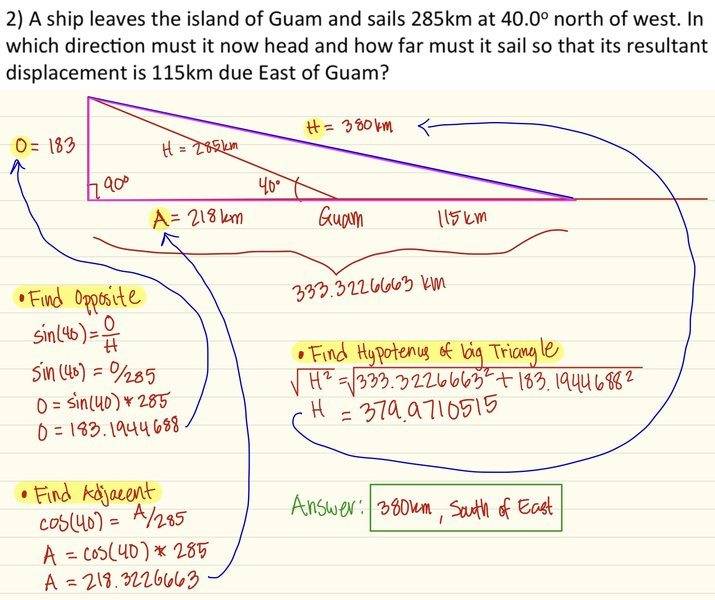 2) A ship leaves the island of Guam and sails 285km at 40.0° north of west. In
which direction must it now head and how far must it sail so that its resultant
displacement is 115km due East of Guam?
H = 380 km
O = 183
H = 285km
90°
40°
A = 218 km
Guam
115km
333.3226663 km
• Find Opposite
sin(40) = O/H
sin(40) = O/285
O = sin(40) * 285
O = 183.1944688
• Find Hypotenus of big Triangle
√H² = √333.3226663² + 183.1944688²
H = 379.9710515
• Find Adjacent
cos(40) = A/285
A = cos(40) * 285
A = 218.3226663
Answer: 380km, South of East